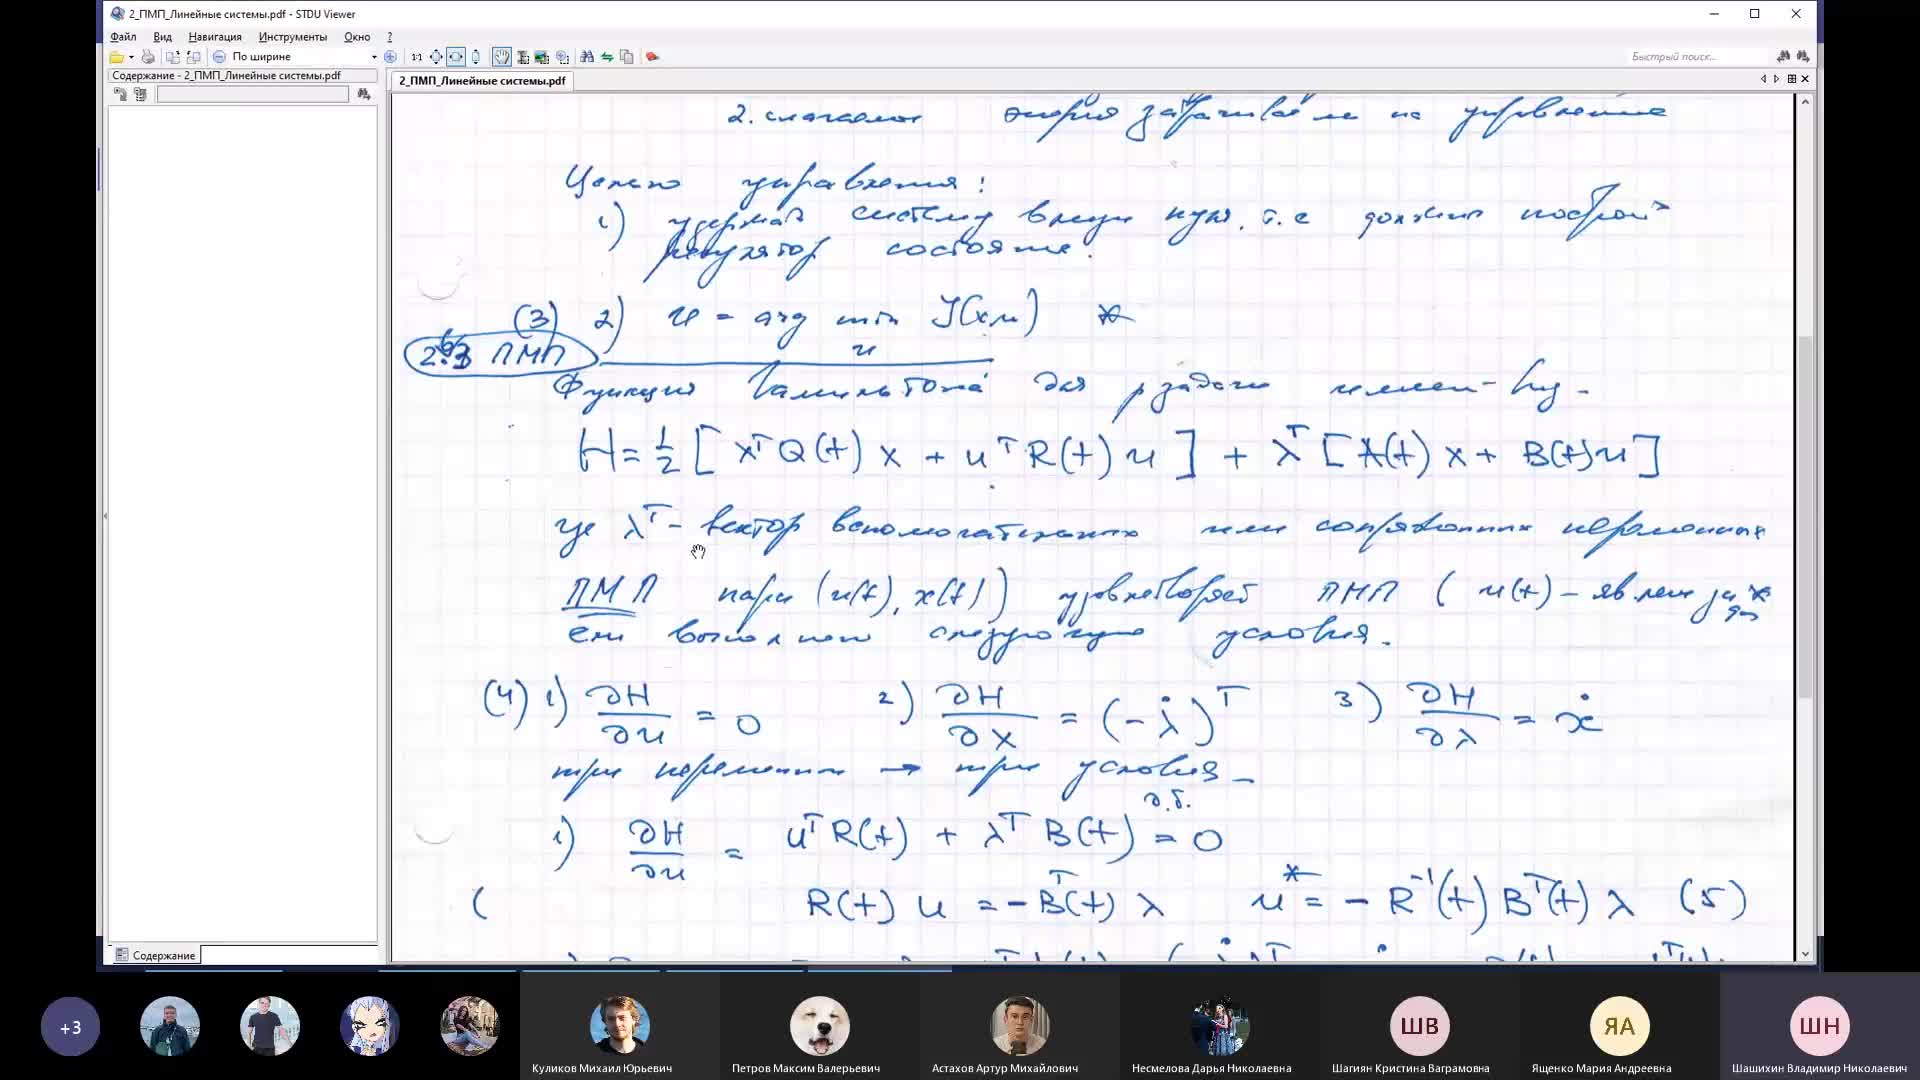 2_ПМП_Линейные системы.pdf - STDU Viewer
Файл Вид Навигация Инструменты Окно ?
По ширине
1:1
Быстрый поиск...
Содержание - 2_ПМП_Линейные системы.pdf
2_ПМП_Линейные системы.pdf
2. слагаемое энергия затрачиваем на управление
Цель управления:
1) удержать систему вблизи нуля, т.е должны построить
регулятор состояния.
(3) 2) u = arg min J(x,u) *
u
2.3 ПМП
Функция Гамильтона для задачи имеет вид -
H = 1/2 [ xᵀQ(t) x + uᵀR(t) u ] + λᵀ [ A(t) x + B(t)u ]
где λᵀ - вектор вспомогательных или сопряженных переменных
ПМП пара (u(t), x(t)) удовлетворяет ПМП ( u(t) - явл
если выполнены следующие условия.
(4) 1) ∂H/∂u = 0 2) ∂H/∂x = (-λ̇)ᵀ 3) ∂H/∂λ = ẋ
три переменных → три условия -
д.б.
1) ∂H/∂u = uᵀR(t) + λᵀB(t) = 0
( R(t) u = - Bᵀ(t) λ u* = - R⁻¹(t) Bᵀ(t) λ (5)
Содержание
+3
Куликов Михаил Юрьевич
Петров Максим Валерьевич
Астахов Артур Михайлович
Несмелова Дарья Николаевна
ШВ
Шагиян Кристина Ваграмовна
ЯА
Ященко Мария Андреевна
ШН
Шашихин Владимир Николаевич